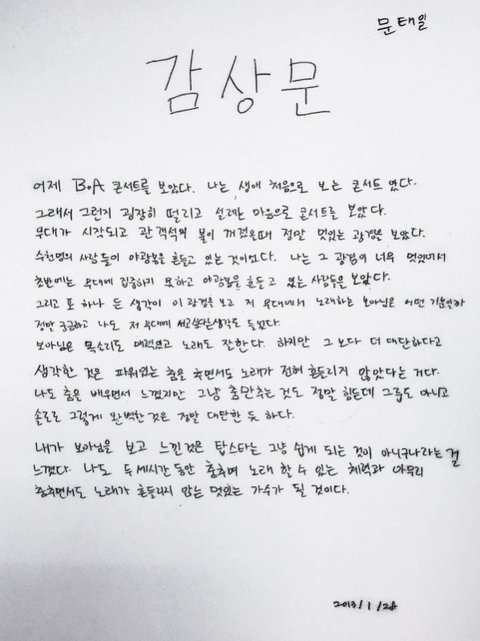 문태일
감상문
어제 BoA 콘서트를 보았다. 나는 생애 처음으로 보는 콘서트 였다.
그래서 그런지 굉장히 떨리고 설레는 마음으로 콘서트를 보았다.
무대가 시작되고 관객석의 불이 꺼졌을때 정말 멋있는 광경을 보았다.
수천명의 사람들이 야광봉을 흔들고 있는 것이었다. 나는 그 광경이 너무 멋있어서
초반에는 무대에 집중하지 못하고 야광봉을 흔들고 있는 사람들을 보았다.
그리고 또 하나 든 생각이 이 광경을 보고 저 무대에서 노래하는 보아님은 어떤 기분일까
정말 궁금하고 나도 저 무대에 서고싶다는생각도 들었다.
보아님은 목소리도 매력있고 노래도 잘한다. 하지만 그 보다 더 대단하다고
생각한 것은 파워있는 춤을 추면서도 노래가 전혀 흔들리지 않았다는 거다.
나도 춤을 배우면서 느꼈지만 그냥 춤만추는 것도 정말 힘든데 그룹도 아니고
솔로로 그렇게 완벽한 것은 정말 대단한 듯 하다.
내가 보아님을 보고 느낀것은 탑스타는 그냥 쉽게 되는 것이 아니구나라는 걸
느꼈다. 나도 두세시간동안 춤추며 노래 할 수 있는 체력과 아무리
춤추면서도 노래가 흔들리지 않는 멋있는 가수가 될 것이다.
2013/1/28